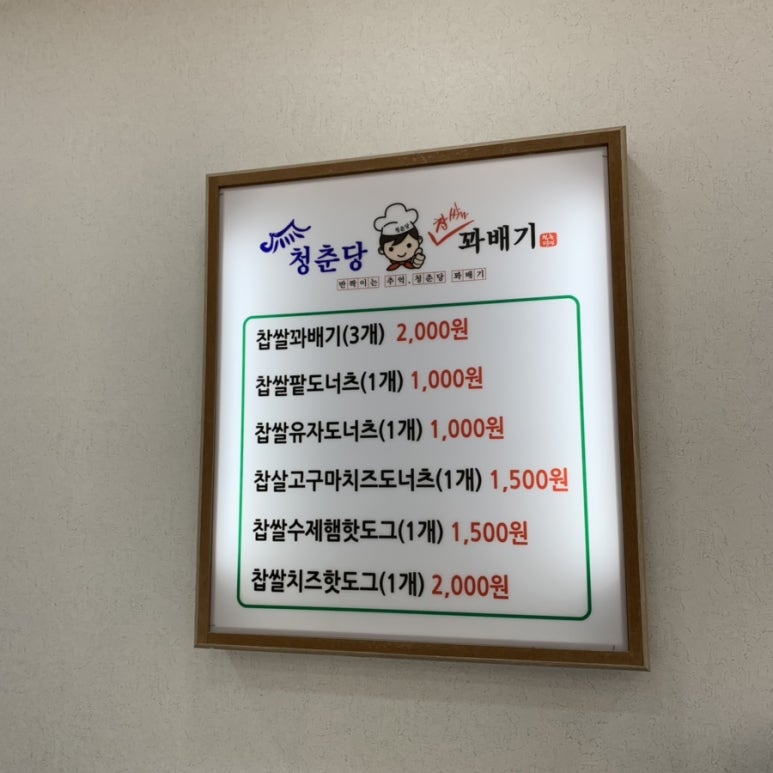 청춘당 찹쌀 꽈배기
반짝이는 추억, 청춘당 꽈배기
찹쌀꽈배기(3개) 2,000원
찹쌀팥도너츠(1개) 1,000원
찹쌀유자도너츠(1개) 1,000원
찹살고구마치즈도너츠(1개) 1,500원
찹쌀수제햄핫도그(1개) 1,500원
찹쌀치즈핫도그(1개) 2,000원